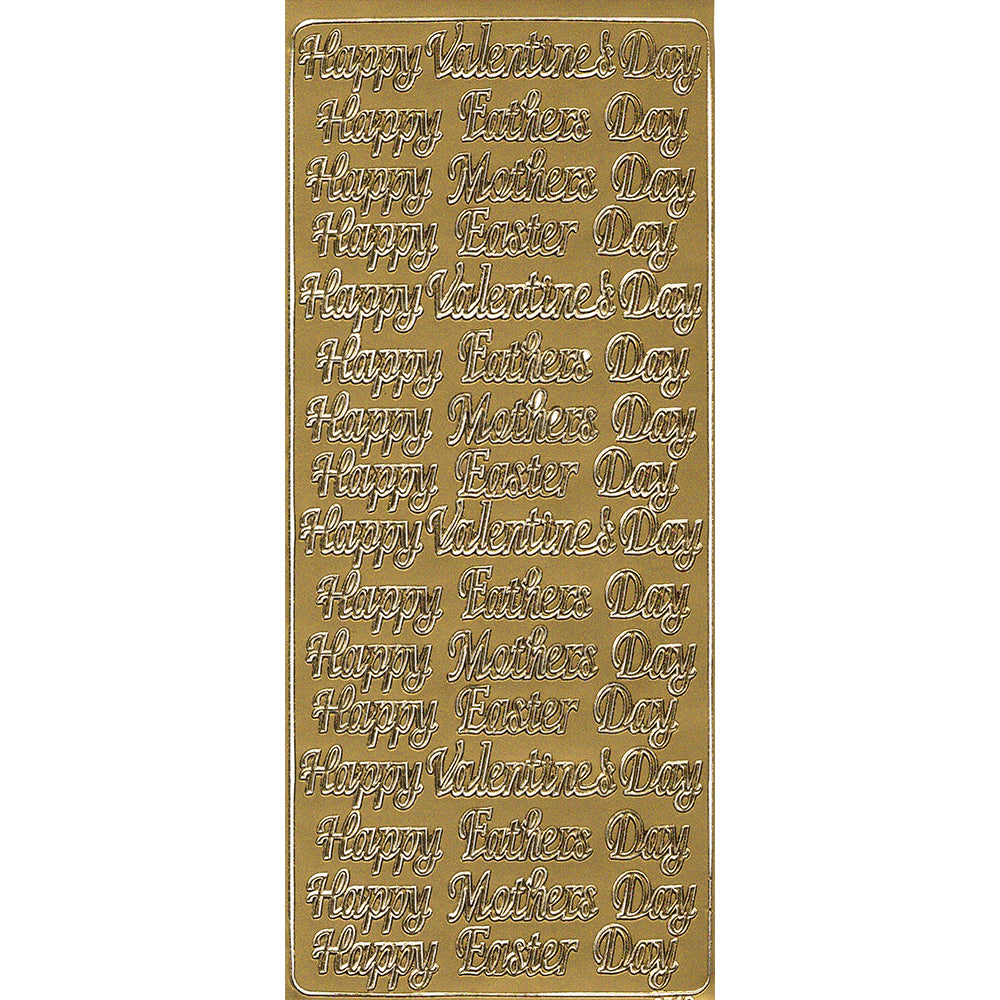 Happy Valentine's Day
Happy Fathers Day
Happy Mothers Day
Happy Easter Day
Happy Valentine's Day
Happy Fathers Day
Happy Mothers Day
Happy Easter Day
Happy Valentine's Day
Happy Fathers Day
Happy Mothers Day
Happy Easter Day
Happy Valentine's Day
Happy Fathers Day
Happy Mothers Day
Happy Easter Day